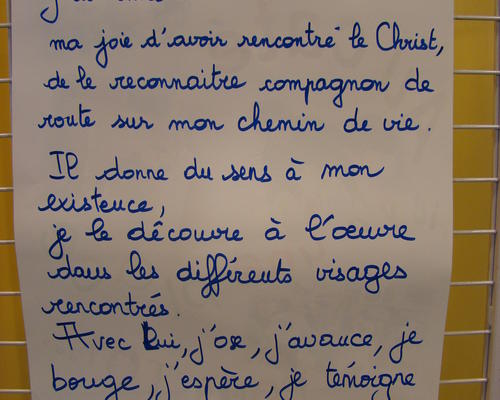 ma joie d'avoir rencontré le Christ,
de le reconnaitre compagnon de
route sur mon chemin de vie.
Il donne du sens à mon
existence,
je le découvre à l'œuvre
dans les différents visages
rencontrés.
Avec Lui, j'ose, j'avance, je
bouge, j'espère, je témoigne